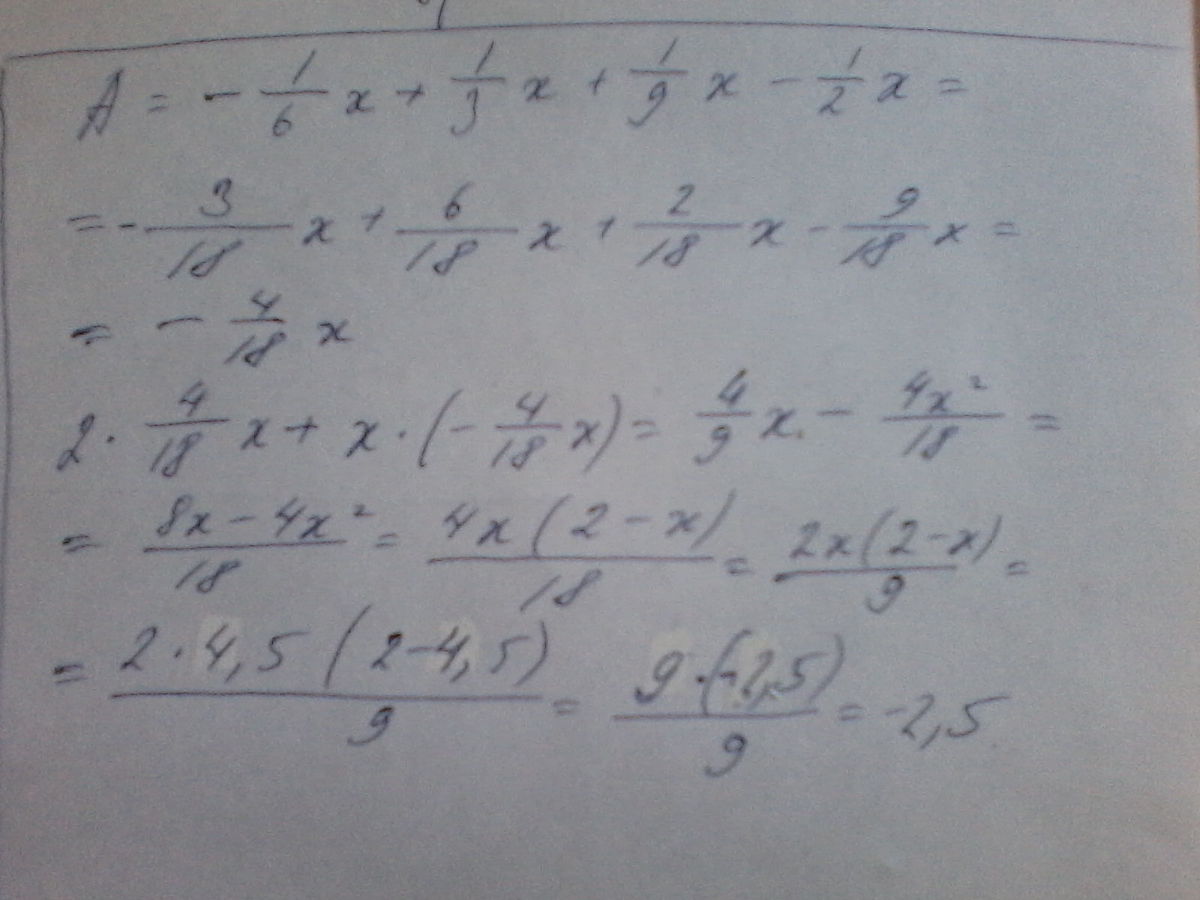 A = - 1/6 x + 1/3 x + 1/9 x - 1/2 x =
= - 3/18 x + 6/18 x + 2/18 x - 9/18 x =
= - 4/18 x
2 · 4/18 x + x · (- 4/18 x) = 4/9 x - 4x²/18 =
= 8x - 4x²/18 = 4x(2 - x)/18 = 2x(2 - x)/9 =
= 2 · 4,5 (2 - 4,5)/9 = 9 · (-2,5)/9 = -2,5